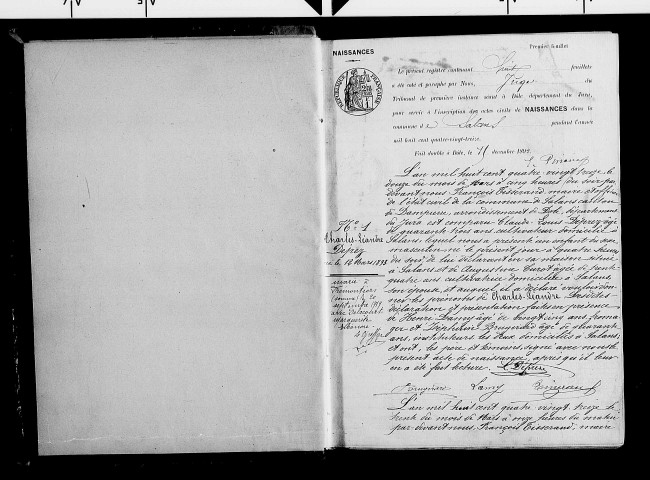 NAISSANCES
Premier feuillet
Le présent registre contenant huit feuillets
a été coté et paraphé par Nous, Juge du
Tribunal de première instance séant à Dole département du Jura,
pour servir à l'inscription des actes civils de NAISSANCES dans la
commune de Salans pendant l'année
mil huit cent quatre-vingt-treize.
Fait double à Dole, le décembre 1892.
RÉPUBLIQUE FRANÇAISE
L'an mil huit cent quatre vingt treize le
douze du mois de Mars à cinq heures du soir par
devant nous François Tisserand, maire et officier
de l'état civil de la commune de Salans canton
de Dampierre, arrondissement de Dole, département
du Jura est comparu Claude Louis Deprez âgé
de quarante trois ans, cultivateur domicilié à
Salans, lequel nous a présenté un enfant du sexe
masculin né le présent jour à quatre heures
du soir, de lui déclarant en sa maison située
à Salans et de Augustine âgée de trente
quatre ans cultivatrice domiciliée à Salans
son épouse, et auquel il a déclaré vouloir don
ner les prénoms de Charles-Léandre. Lesdites
déclaration et présentation faites en présence
de Henri Lamy âgé de vingt cinq ans froma
ger et Delphin âgé de soixante
ans, instituteur les deux domiciliés à Salans;
et ont, les père et témoins, signé avec nous le
présent acte de naissance, après qu'il leur
en a été fait lecture.
N° 1
Charles-Léandre
Deprez
né le 12 Mars 1893
marié à
le 20
septembre 1919
avec
Lamy Tisserand
L'an mil huit cent quatre vingt treize le
trente du mois de Mars à onze heures du matin
par devant nous François Tisserand, maire